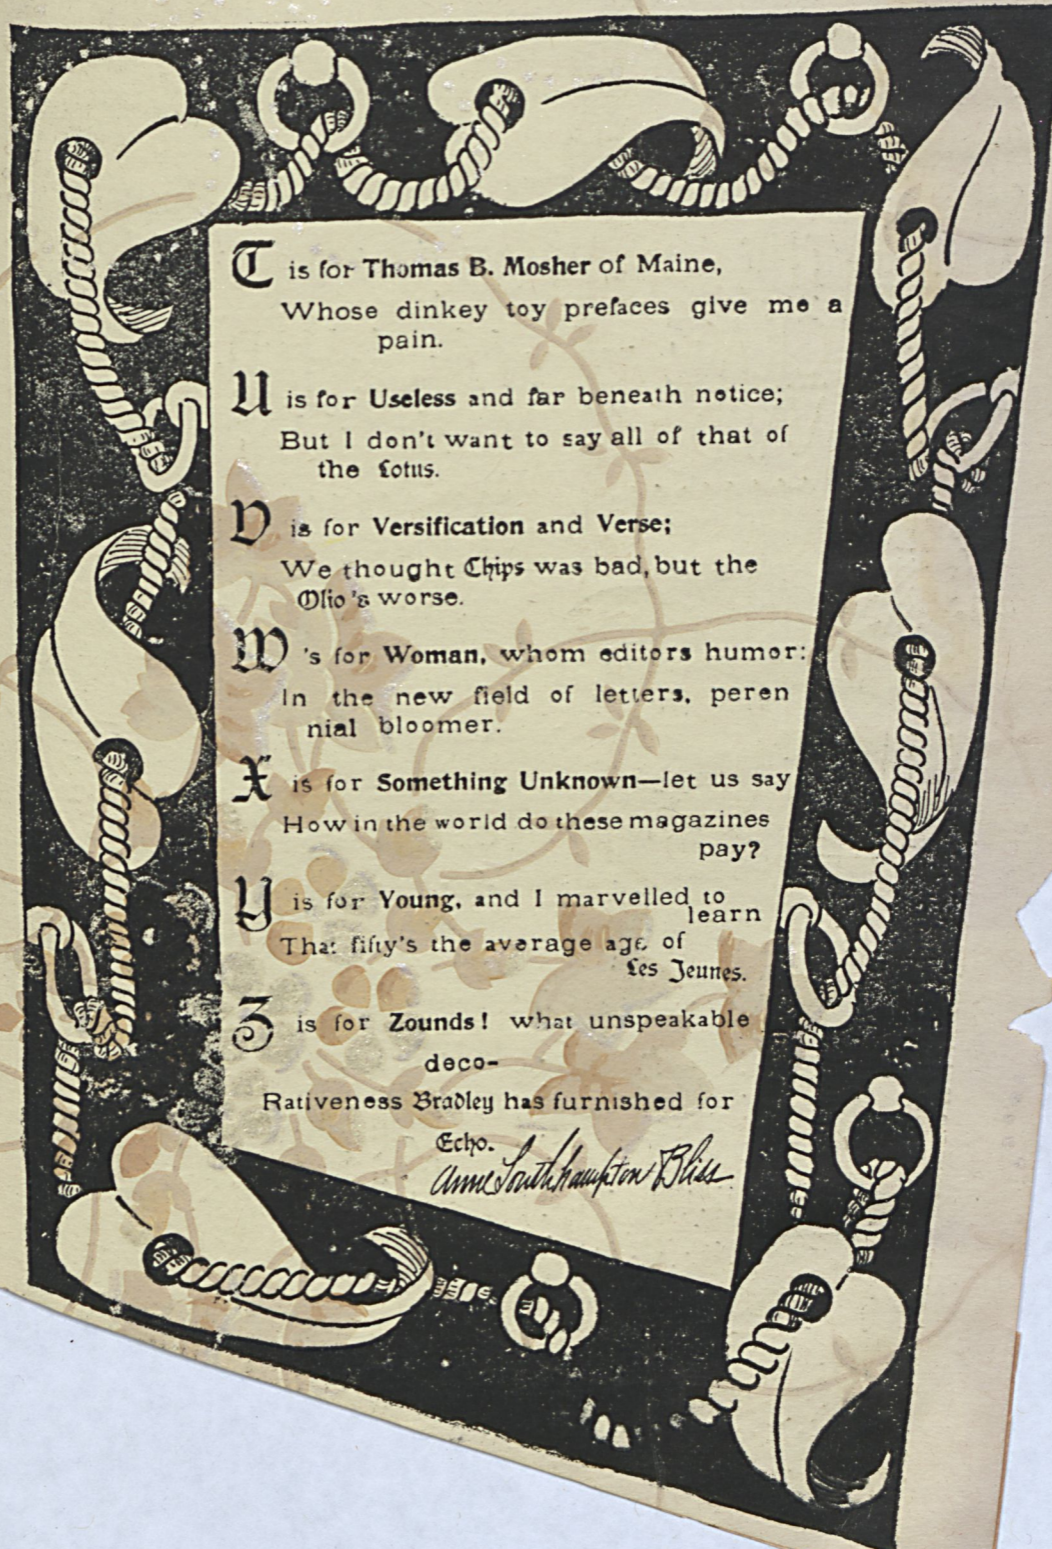 T is for Thomas B. Mosher of Maine,
Whose dinkey toy prefaces give me a
pain.
U is for Useless and far beneath notice;
But I don't want to say all of that of
the Lotus.
V is for Versification and Verse;
We thought Chips was bad, but the
Olio's worse.
W's for Woman, whom editors humor:
In the new field of letters, peren
nial bloomer.
X is for Something Unknown—let us say
How in the world do these magazines
pay?
Y is for Young, and I marvelled to
learn
That fifty's the average age of
Les Jeunes.
Z is for Zounds! what unspeakable
deco-
Rativeness Bradley has furnished for
Echo.
Anne Southhampton Bliss